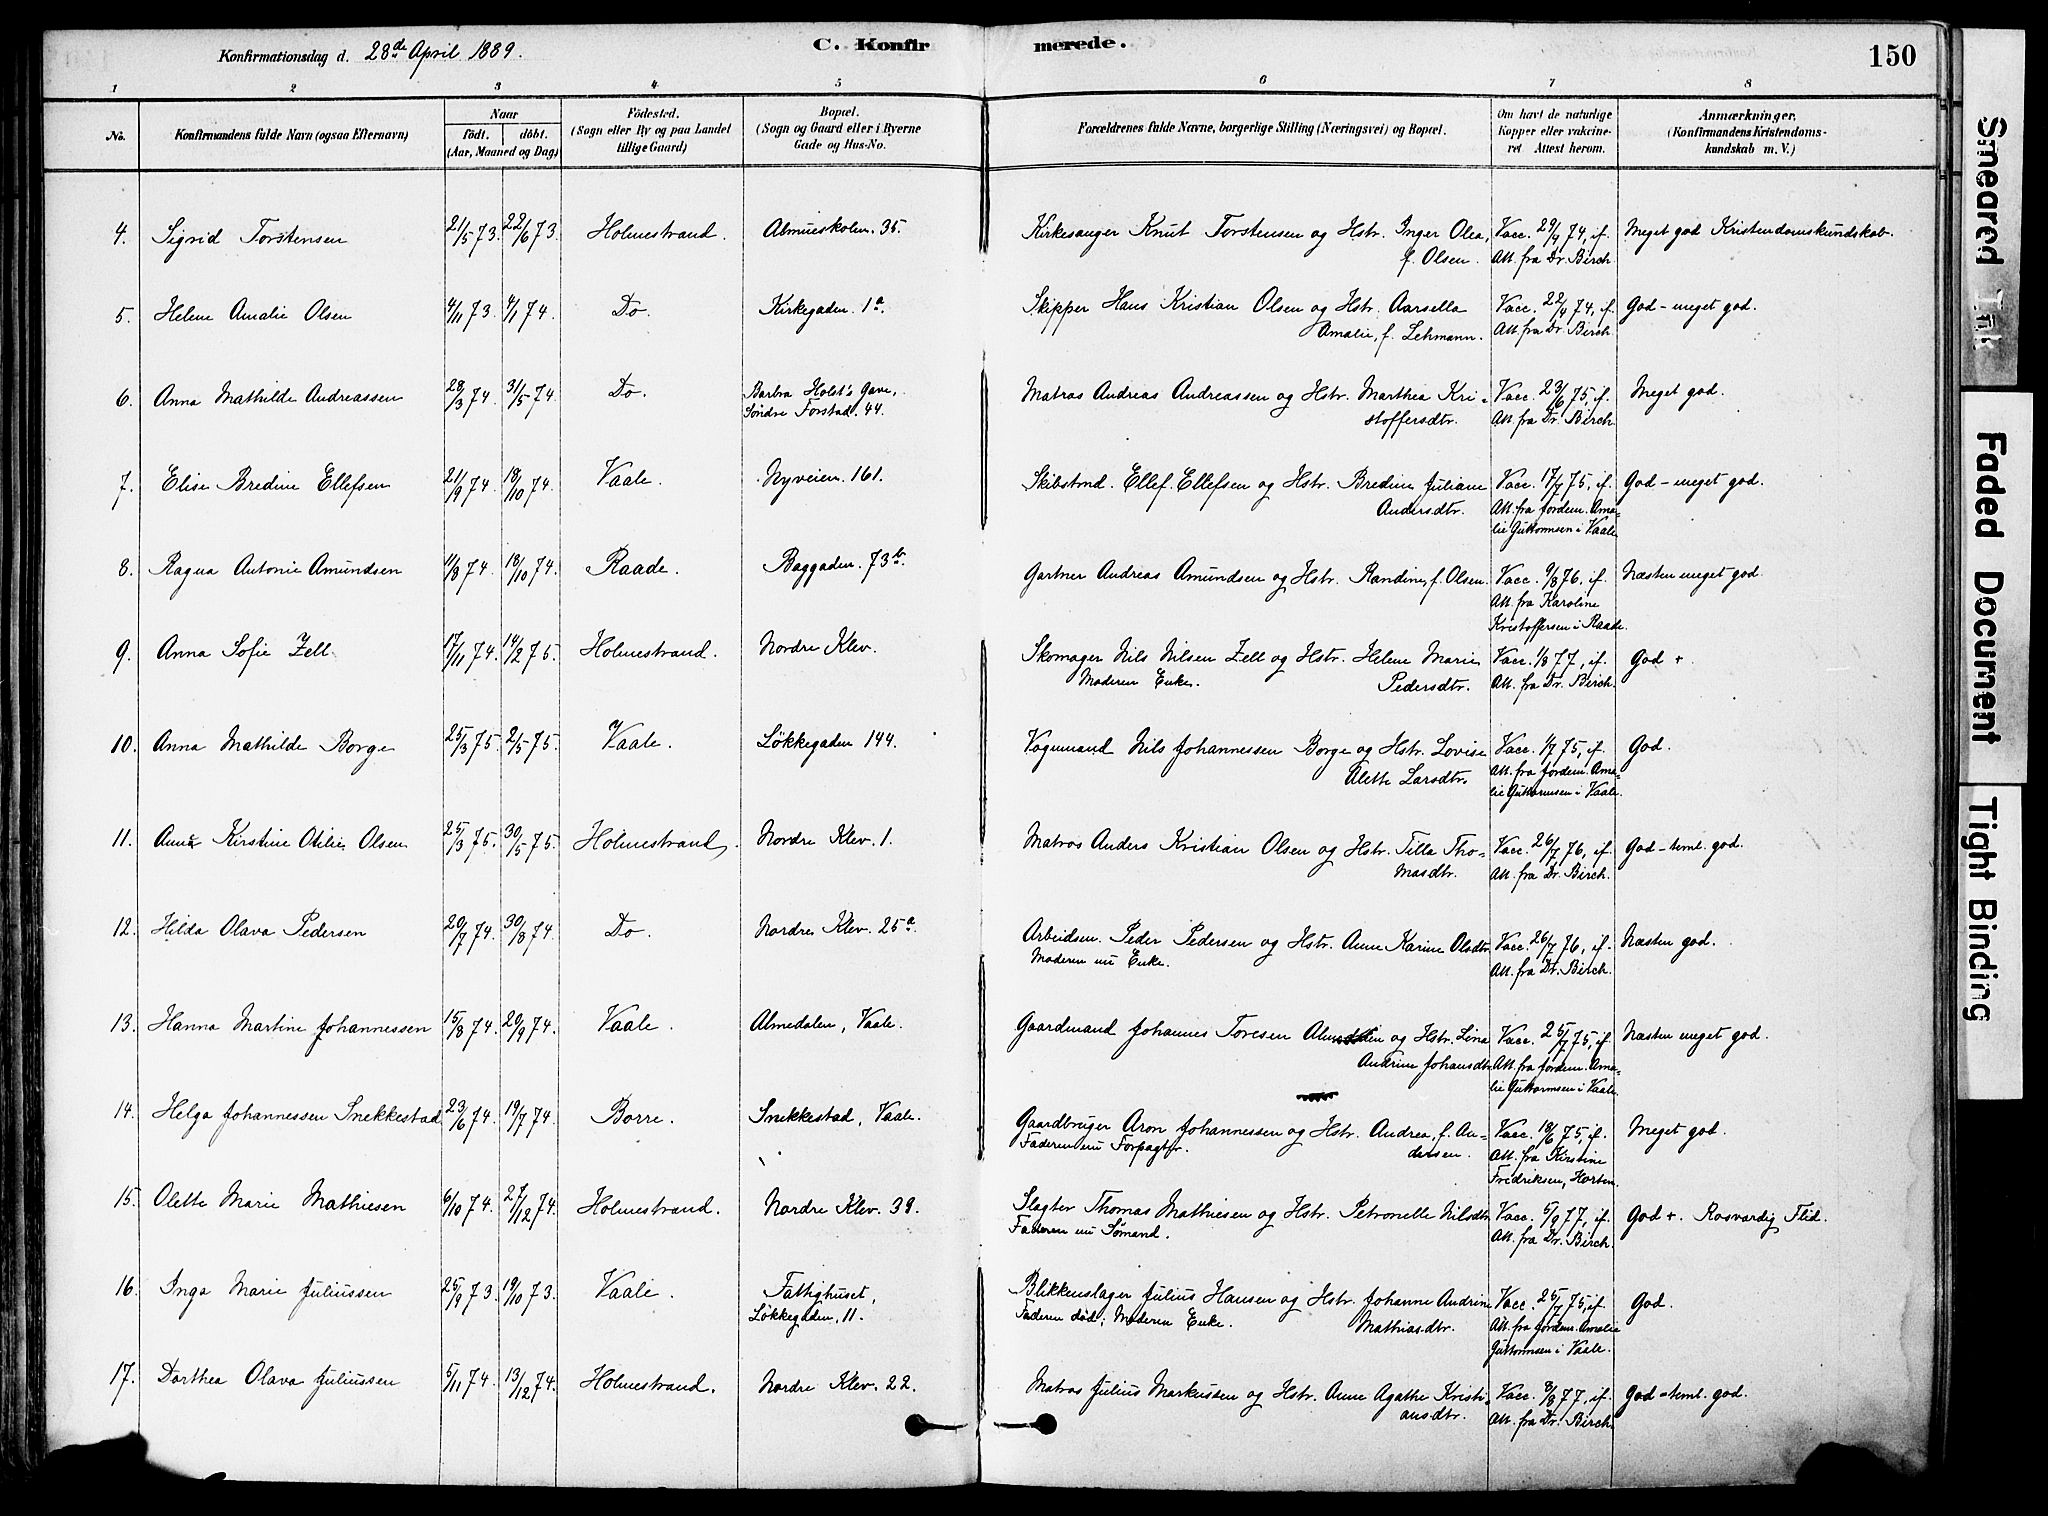 Konfirmationsdag d. 28de April 1889.
C. Konfirmerede.
150
1 2 3 4 5 6 7 8
No.
Konfirmandens fulde Navn (ogsaa Efternavn)
Naar
födt. döbt.
(Aar, Maaned og Dag)
Födested.
(Sogn eller By og paa Landet
tillige Gaard)
Bopæl.
(Sogn og Gaard eller i Byerne
Gade og Hus-No.
Forældrenes fulde Navne, borgerlige Stilling (Næringsvei) og Bopæl.
Om havt de naturlige
Kopper eller vakcine-
ret Attest herom.
Anmærkninger,
(Konfirmandens Kristendoms-
kundskab m. V.)
4. Sigrid Torstensen 21/5 73. 22/6 73. Holmestrand. Almueskolen. 35. Kirkesanger Knut Torstensen og Hstr. Inger Olea, Vacc. 29/4 74, if. Meget god Kristendomskundskab.
f. Olsen. Att. fra Dr. Birch.
5. Helene Amalie Olsen 4/11 73 4/1 74. Do. Kirkegaden. 1a. Skipper Hans Kristian Olsen og Hstr. Aarsella Vacc. 22/4 74, if. God - meget god.
Amalie, f. Lehmann. Att. fra Dr. Birch
6. Anna Mathilde Andreassen 28/3 74. 31/5 74 Do. Barbra Holst's Gave, Matros Andreas Andreassen og Hstr. Marthea Kri- Vacc. 23/6 75, if. Meget god.
Söndre Forstad. 44. stoffersdtr. Att. fra Dr. Birch.
7. Elise Bredine Ellefsen 21/9 74. 18/10 74. Vaale. Nyveien. 161. Skibstmd. Ellef Ellefsen og Hstr. Bredine Juliane Vacc. 17/7 75, if. God - meget god.
Andersdtr. Att. fra Jordem. Ama-
lie Guttormsen i Vaale
8. Ragna Antonie Amundsen 11/8 74. 18/10 74. Raade. Baggaden. 73b. Gartner Andreas Amundsen og Hstr. Randine, f. Olsen. Vacc. 9/8 76, if. Næsten meget god.
Att. fra Karoline
Kristoffersen i Raade.
9. Anna Sofie Zell 17/11 74. 14/2 75. Holmestrand. Nordre Klev. Skomager Nils Nilsen Zell og Hstr. Helene Marie Vacc. 1/8 77, if. God +.
Moderen Enke. Pedersdtr. Att. fra Dr. Birch.
10. Anna Mathilde Borge 25/3 75. 2/5 75. Vaale. Løkkegaden 144. Vognmand Nils Johannessen Borge og Hstr. Lovise Vacc. 1/7 75, if. God.
Alette Larsdtr. Att. fra Jordem. Ama-
lie Guttormsen i Vaale.
11. Anna Kirstine Otilie Olsen 25/3 75. 30/5 75. Holmestrand. Nordre Klev. 1. Matros Anders Kristian Olsen og Hstr. Tilla Tho- Vacc. 26/7 76, if. God - teml. god.
masdtr. Att. fra Dr. Birch.
12. Hilda Olava Pedersen 20/7 74. 30/8 74. Do. Nordre Klev. 25a. Arbeidsm. Peder Pedersen og Hstr. Anne Karine Olsdtr. Vacc. 26/7 76, if. Næsten god.
Moderen nu Enke. Att. fra Dr. Birch.
13. Hanna Martine Johannessen 15/8 74. 20/9 74. Vaale. Almedalen, Vaale. Gaardmand Johannes Toresen og Hstr. Lina Vacc. 25/7 75, if. Næsten meget god.
Andrine Johansdtr. Att. fra Jordem. Ama-
lie Guttormsen i Vaale.
14. Helga Johannessen Snekkestad 23/6 74. 19/7 74. Borre. Snekkestad, Vaale. Gaardbruger Aron Johannessen og Hstr. Andrea, f. An- Vacc. 18/6 75, if. Meget god.
Faderen nu Forpagter. dersen. Att. fra Kirstine
Fredriksen, Horten.
15. Olette Marie Mathiesen 6/10 74. 27/12 74. Holmestrand. Nordre Klev. 39. Slagter Thomas Mathiesen og Hstr. Petronelle Nilsdtr. Vacc. 5/9 77, if. God +. Rosværdig Flid.
Faderen nu Sømand. Att. fra Dr. Birch.
16. Inga Marie Juliussen 25/9 73. 19/10 73. Vaale. Fattighuset, Blikkenslager Julius Hansen og Hstr. Johanne Andrine Vacc. 25/7 75, if. God.
Løkkegaden, 11. Faderen död; Moderen Enke. Mathiasdtr. Att. fra Jordem. Amalie
Guttormsen i Vaale.
17. Dorthea Olava Juliussen 5/11 74. 13/12 74. Holmestrand. Nordre Klev. 22. Matros Julius Markussen og Hstr. Anne Agathe Kristi- Vacc. 8/8 77, if. God - teml. god.
ansdtr. Att. fra Dr. Birch
Smeared Ink
Faded Document
Tight Binding